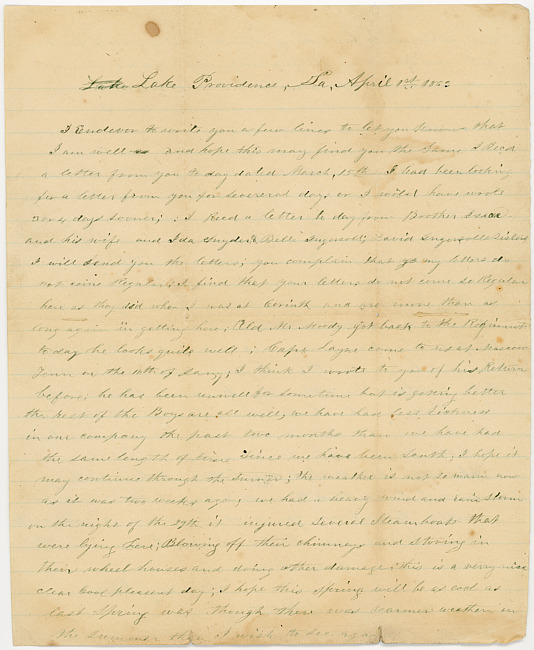 Lake Lake Providence, La, April 1st 1863
I Endevor to write you a few lines to let you know that
I am well and hope this may find you the Same I Recd
a letter from you to day dated March 15th I had been looking
for a letter from you for severeral days or I would have wrote
3 or 4 days Sooner; I Recd a letter to day from Boother Isaac
and his wife and Ida Snyder, Belle Ingersoll, David Ingersolls Sisters
I will Send you the letters; you complain that my letters do
not come Regular; I find that your letters do not come So Regular
here as they did when I was at Corinth and are more than as
long again in getting here, Old Mr Moody got back to the Regiment
to day he looks quite well; Capt came to us at
Tenn on the 10th of Jany; I think I wrote to you of his Return
before; he has been unwell for Sometime but is geting better
the Rest of the Boys are all well, we have had less Sickness
in our company the past two months than we have had
the same length of time Since we have been South, I hope it
may continue through the Summer; the weather is not So warm now
as it was two weeks ago; we had a heavy wind and rain Storm
on the night of the 29th it injured Several Steamboats that
were lying here; Blowing off their chimneys and Stoving in
their wheel houses and doing other damage; this is a very nice
clear cool pleasant day; I hope this Spring will be as cool as
last Spring was though there was warmer weather in
the Summer than I wish to See again